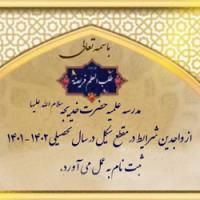 باسمه تعالی
طلب العلم فریضة
مدرسه علمیه حضرت خدیجه سلام الله علیها
از واجدین شرایط در مقطع تکمیل در سال تحصیلی ۱۴۰۲-۱۴۰۱
ثبت نام به عمل می آورد.